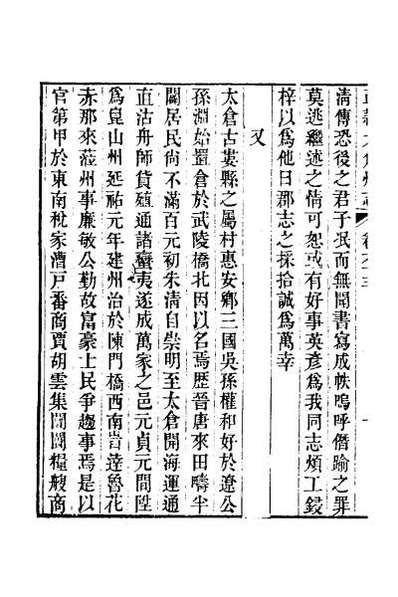 清傳恐後之君子泯而無聞書寫成帙嗚呼僭踰之罪
莫逃繼述之情可恕或有好事英彥為我同志煩工鋟
梓以為他日郡志之採拾誠為萬幸
又
太倉古婁縣之屬村惠安鄉三國吳孫權和好於遼公
孫淵始置倉於武陵橋北因以名焉歷晉唐來田疇半
闢居民尚不滿百元初朱清自崇明至太倉開海運通
直沽舟師貨殖通諸蠻夷遂成萬家之邑元貞元間陞
為崑山州延祐元年建州治於陳門橋西南時達魯花
赤那來蒞州事廉敏公勤故富豪士民爭趨事焉是以
官第甲於東南稅家漕戶番商賈胡雲集闤闠糧艘商